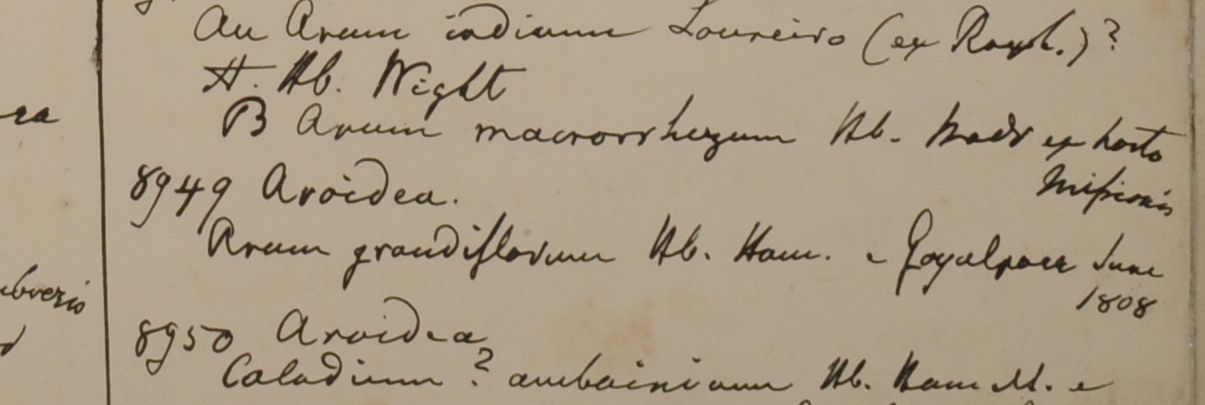 An Arum indicum Loureiro (ex Roxb.)?
H. Hb. Wight
B Arum macrorrhizum Hb. Madr ex horto
Missionis
8949 Aroidea.
Arum grandiflorum Hb. Ham. e Goyalpara June
1808
8950 Aroidea
Caladium? amboinicum Hb. Hamilt. e